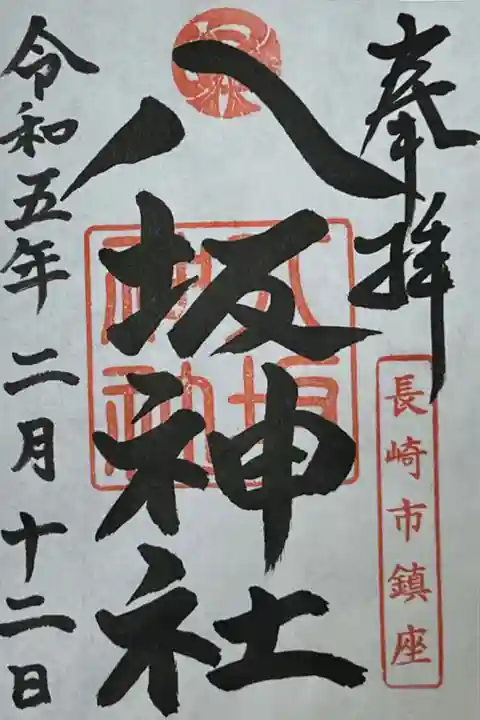 奉拝
長崎市鎮座
八坂神社
令和五年二月十二日